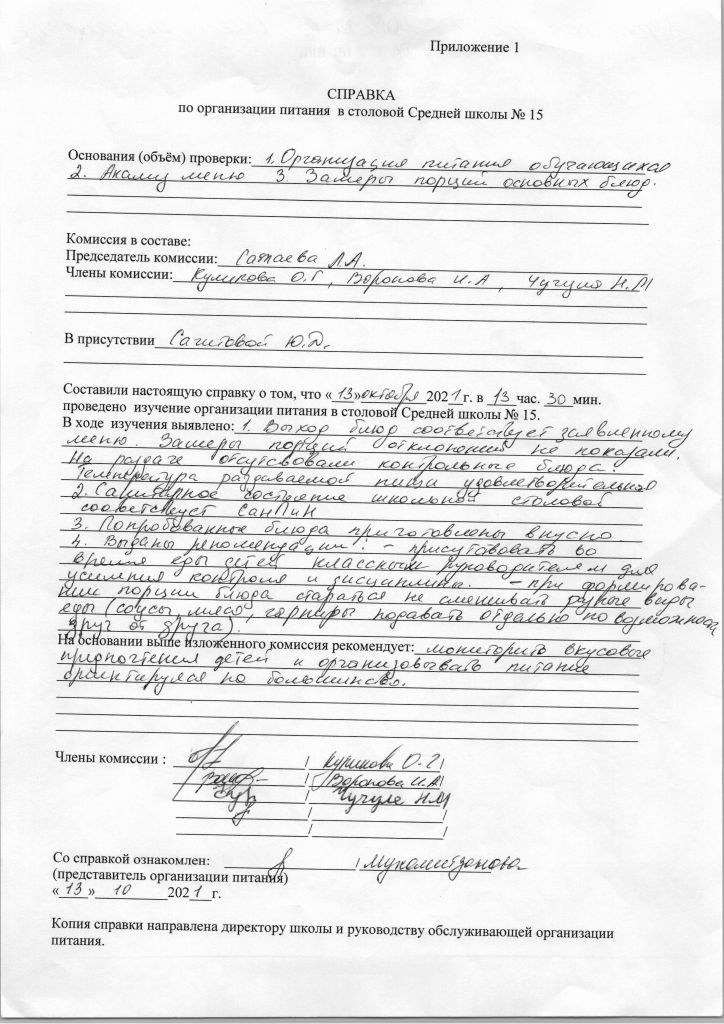 Приложение 1
СПРАВКА
по организации питания в столовой Средней школы № 15
Основания (объём) проверки: 1. Организация питания обучающихся
2. Анализ меню 3 Замеры порций основных блюд.
Комиссия в составе:
Председатель комиссии: Сатаева Л.А.
Члены комиссии: Куликова О.Г, Воронова И.А, Чучуля Н.М
В присутствии Сагитовой Ю.Д.
Составили настоящую справку о том, что «13» октября 2021 г. в 13 час. 30 мин.
проведено изучение организации питания в столовой Средней школы № 15.
В ходе изучения выявлено: 1. Выход блюд соответствует заявленному
меню. Замеры порций отклонений не показали.
На раздаче отсутсвовали контрольные блюда.
Температура раздаваемой пищи удовлетворительная
2. Санитарное состояние школьной столовой
соответсвует СанПин
3. Попробованные блюда приготовлены вкусно.
4. Выданы рекомендации: - присутсвовать во
время еды детей классным руководителем для
усиления контроля и дисциплины. - при формирова-
нии порции блюда стараться не смешивать разные виды
еды (соусы, мясо, гарниры подавать отдельно по возможности
друг от друга).
На основании выше изложенного комиссия рекомендует: мониторить вкусовые
предпочтения детей и организовывать питание
ориентируяся на большинство.
Члены комиссии : / Куликова О.Г/
/ Воронова И.А/
/ Чучуля Н.М/
/ /
/ /
Со справкой ознакомлен: / Мухаметзанова
(представитель организации питания)
«13» 10 2021 г.
Копия справки направлена директору школы и руководству обслуживающей организации
питания.